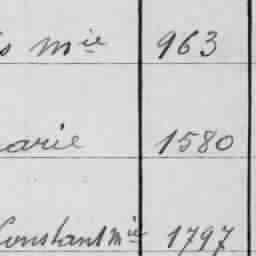 s Mie 963
arie 1580
Constant Mie 1797